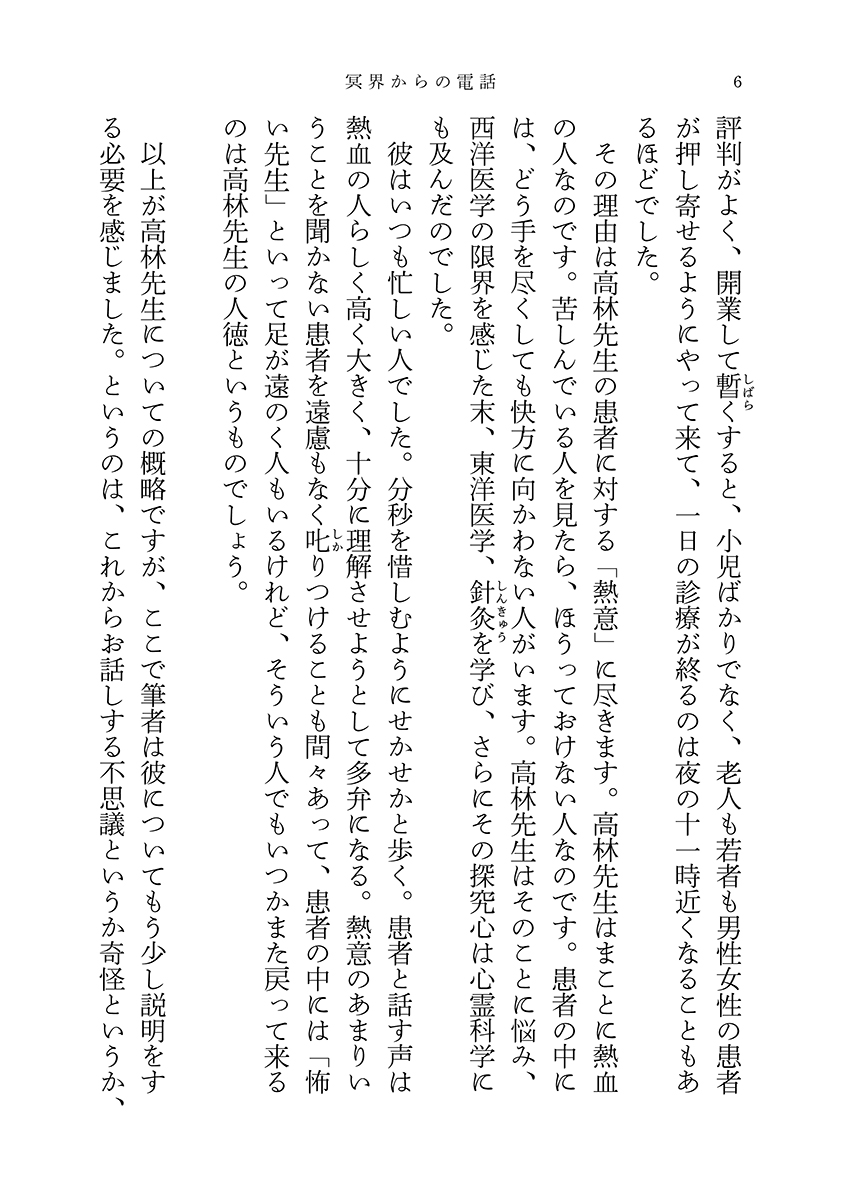 冥界からの電話
6
評判がよく、開業して暫くすると、小児ばかりでなく、老人も若者も男性女性の患者
しばら
が押し寄せるようにやって来て、一日の診療が終るのは夜の十一時近くなることもあ
るほどでした。
その理由は高林先生の患者に対する「熱意」に尽きます。高林先生はまことに熱血
の人なのです。苦しんでいる人を見たら、ほうっておけない人なのです。患者の中に
は、どう手を尽くしても快方に向かわない人がいます。高林先生はそのことに悩み、
西洋医学の限界を感じた末、東洋医学、針灸を学び、さらにその探究心は心霊科学に
しんきゅう
も及んだのでした。
彼はいつも忙しい人でした。分秒を惜しむようにせかせかと歩く。患者と話す声は
熱血の人らしく高く大きく、十分に理解させようとして多弁になる。熱意のあまりい
うことを聞かない患者を遠慮もなく叱りつけることも間々あって、患者の中には「怖
しか
い先生」といって足が遠のく人もいるけれど、そういう人でもいつかまた戻って来る
のは高林先生の人徳というものでしょう。
以上が高林先生についての概略ですが、ここで筆者は彼についてもう少し説明をす
る必要を感じました。というのは、これからお話しする不思議というか奇怪というか、